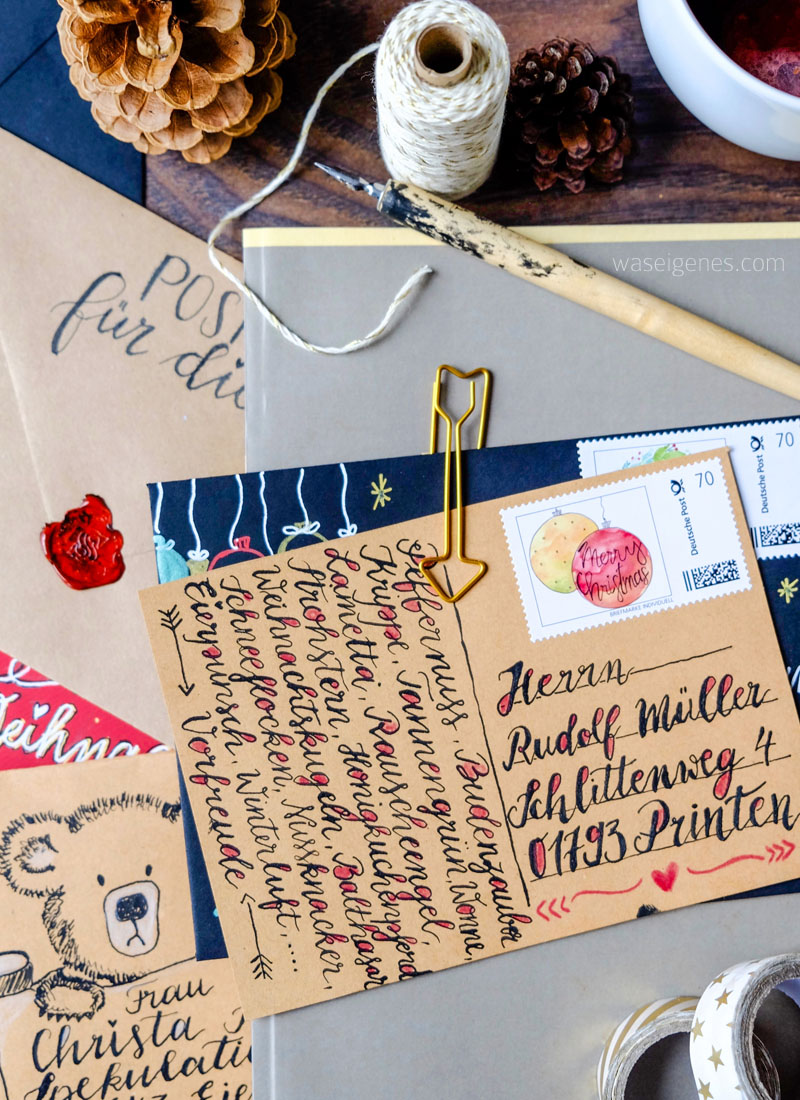 waseigenes.com
POST
für di
70
Deutsche Post
70
Deutsche Post
Merry
Christmas
BRIEFMARKE INDIVIDUELL
Pfeffernuss, Budenzauber
Krippe, Tannengrün, Wonne,
Lametta, Rauscheengel,
Strohstern, Honigkuchenpferd
Weihnachtskugeln, Balthasar
Schneeflocken, Nussknacker,
Eierpunsch, Winterluft, ....
Vorfreude
Herrn
Rudolf Müller
Schlittenweg 4
01793 Printen
Weihnac
Frau
Christa
Spekulati